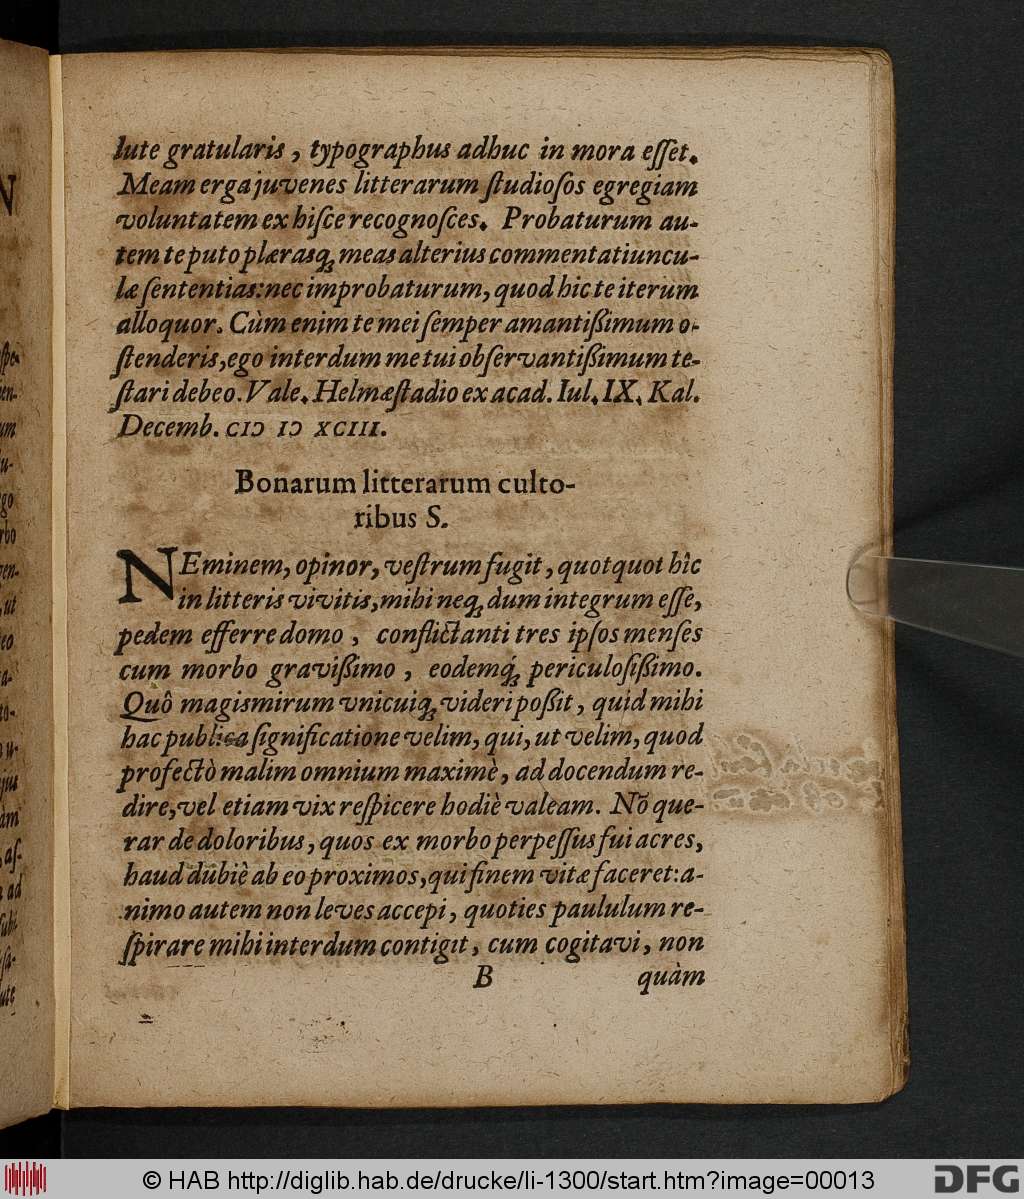 lute gratularis, typographus adhuc in mora eſſet.
Meam erga juvenes litterarum ſtudioſos egregiam
voluntatem ex hiſce recognoſces. Probaturum au-
tem te puto plærasq́ meas alterius commentatiuncu-
læ ſententias: nec improbaturum, quod hic te iterum
alloquor. Cùm enim te mei ſemper amantißimum o-
ſtenderis, ego interdum me tui obſervantißimum te-
ſtari debeo. Vale. Helmæſtadio ex acad. Iul. IX. Kal.
Decemb. CIↃ IↃ XCIII.
Bonarum litterarum culto-
ribus S.
NEminem, opinor, veſtrum fugit, quotquot hîc
in litteris vivitis, mihi neq́ dum integrum eſſe,
pedem efferre domo, conflictanti tres ipſos menſes
cum morbo gravißimo, eodemq́ periculoſißimo.
Quô magis mirum vnicuiq́ videri poßit, quid mihi
hac publica ſignificatione velim, qui, ut velim, quod
profectò malim omnium maximè, ad docendum re-
dire, vel etiam vix reſpicere hodiè valeam. Nō que-
rar de doloribus, quos ex morbo perpeſſus fui acres,
haud dubiè ab eo proximos, qui finem vitæ faceret: a-
nimo autem non leves accepi, quoties paululum re-
ſpirare mihi interdum contigit, cum cogitavi, non
B quàm
© HAB http://diglib.hab.de/drucke/li-1300/start.htm?image=00013
DFG